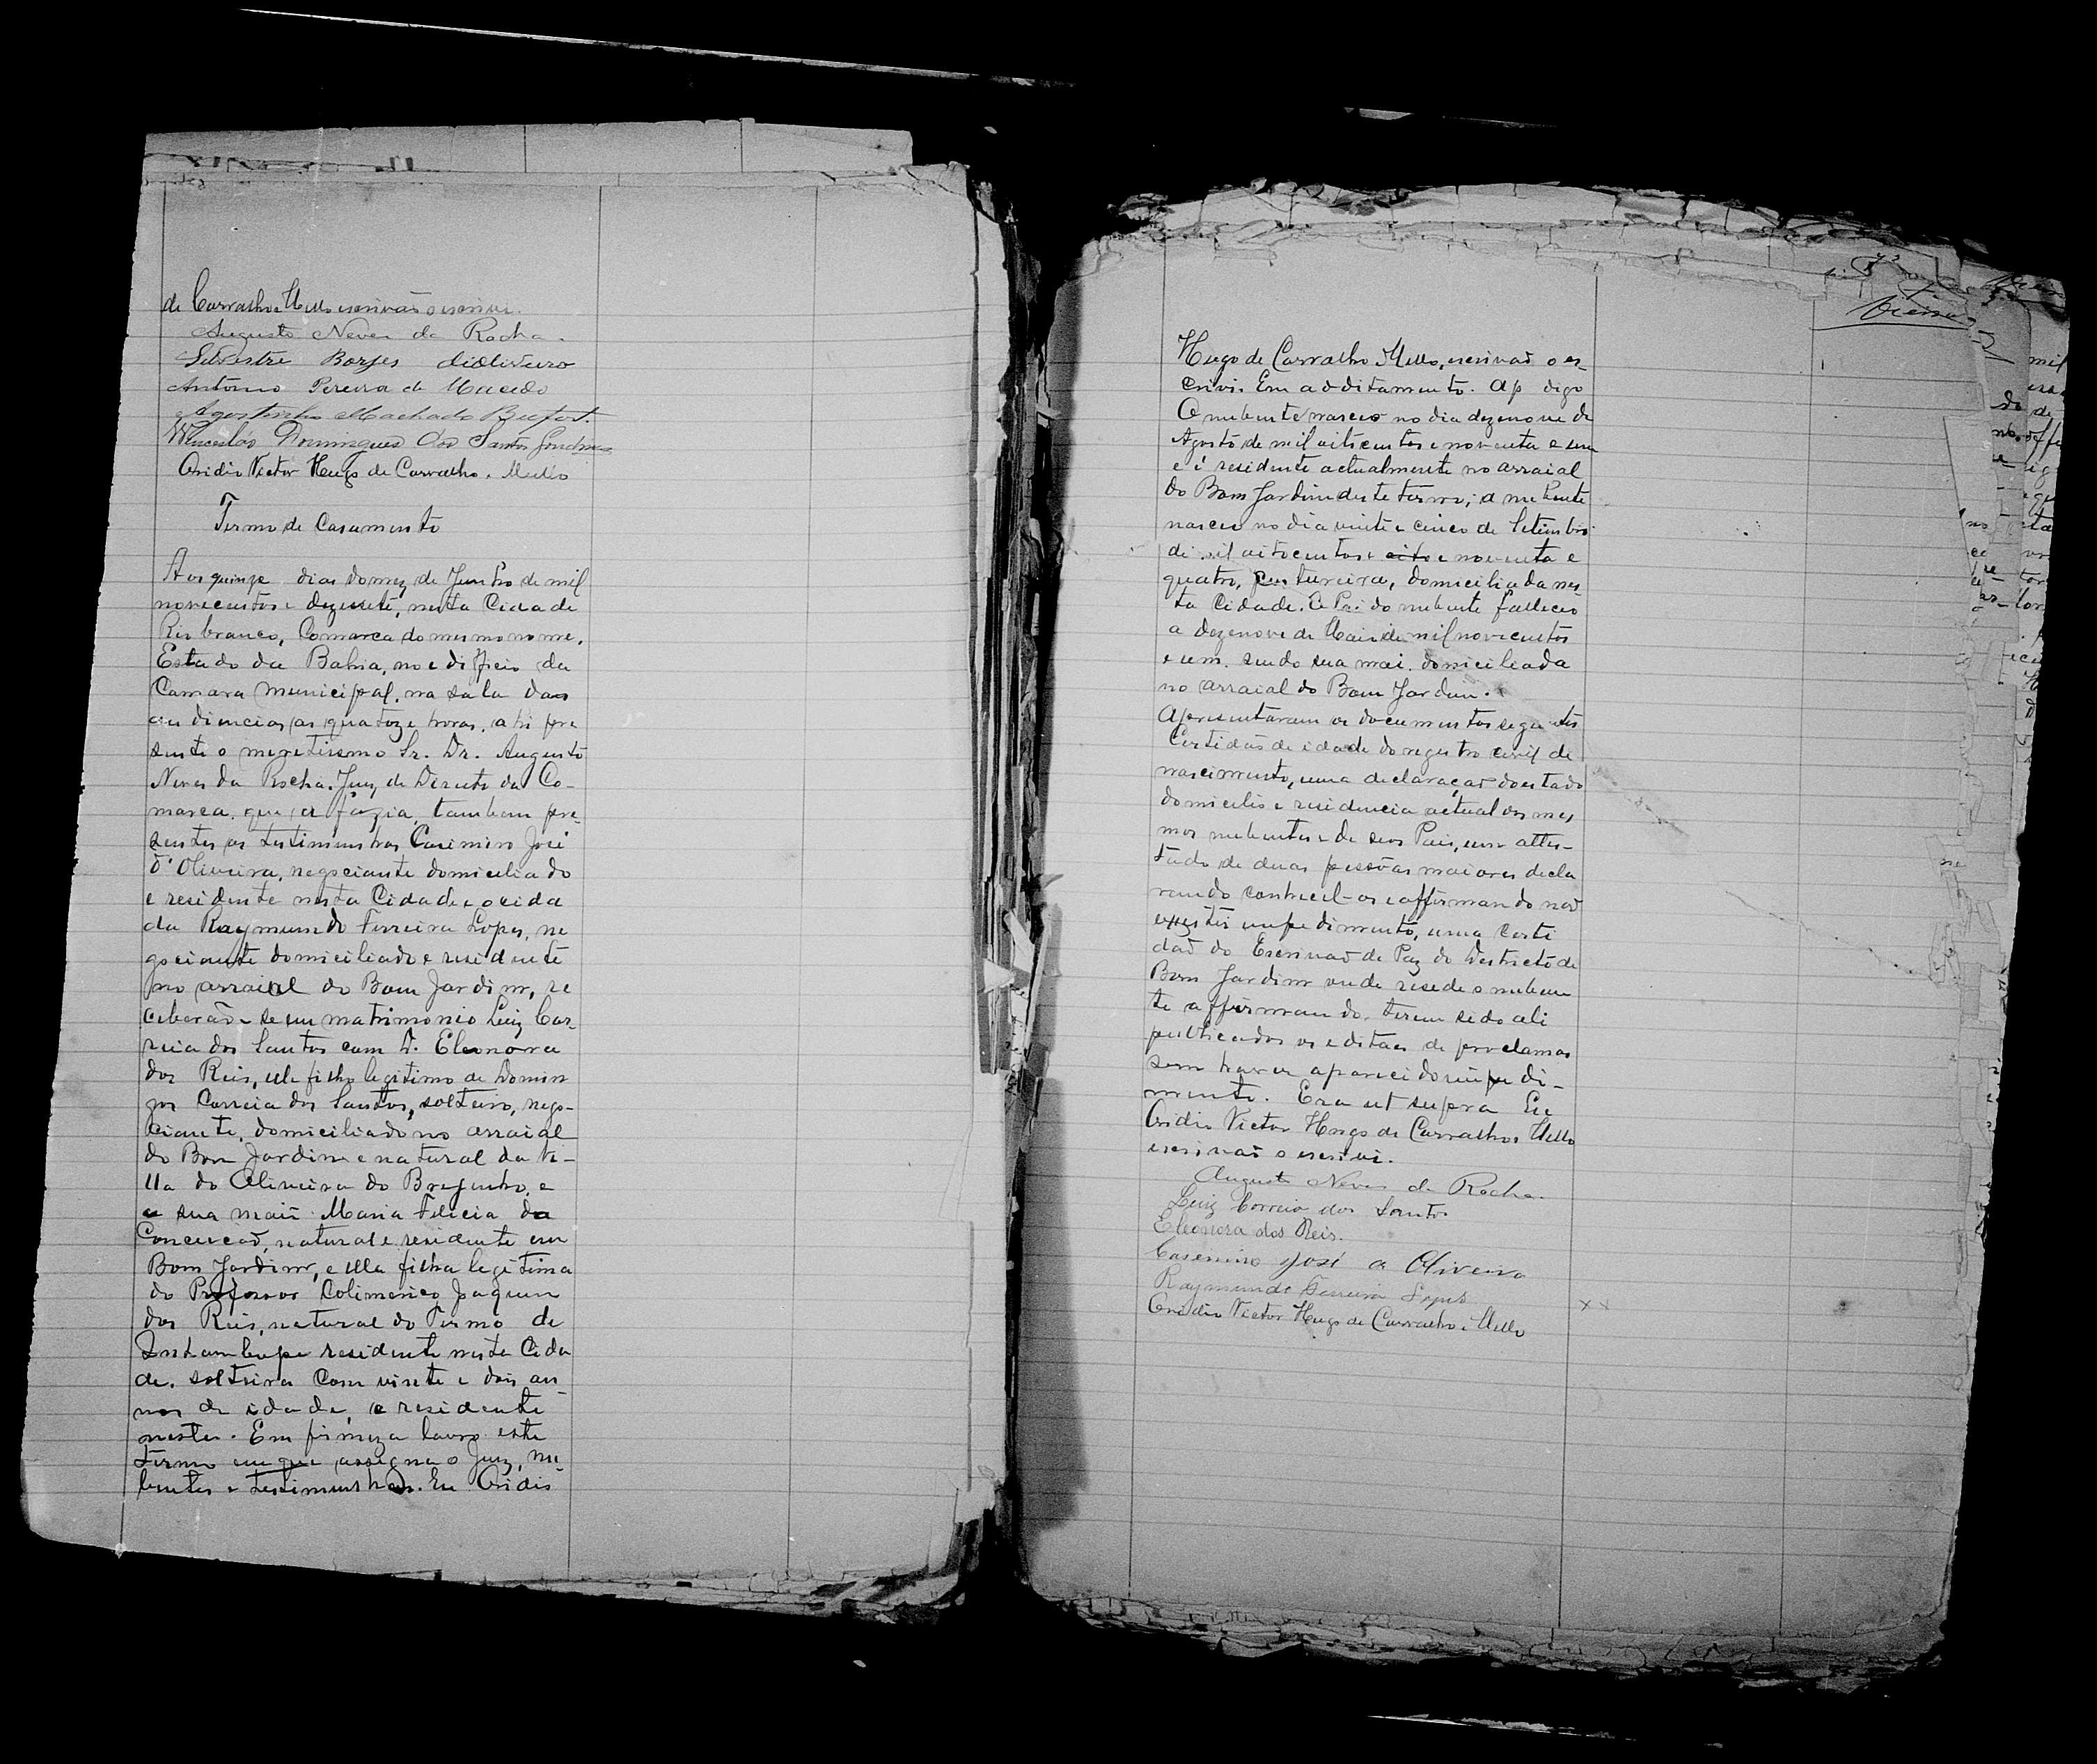 de Carvalho e Mello escrivão o escrivi.
Augusto Neves da Rocha.
Silvestre Borges diolivevro
Antonio Pereira de Macedo
Agostinho Machado Beefort.
Wencesláo Domingues dos Santos
Ovidio Victor Hugo de Carvalho e Mello
Termo de Casamento
Aos quinze dias do mez de Junho de mil
novecentos e dezesete, nesta Cidade
Rio branco, Comarca do mesmo nome,
Estado da Bahia, no edifficio da
Camara Municipal, na sala das
audiencias, as quatoze horas, ahi pre
sente o meretissmo Sr. Dr. Augusto
Neves da Rocha, Juiz de Direito da Co-
marca, que a fazia, tambem pre-
sentes as testimunhas Casimiro José
d'Oliveira, negociante domiciliado
e residente nesta Cidade e o cida
da Raymundo Ferreira Lopes, ne
gociante domiciliado e residente
no arraial do Bom Jardim, re
ceberão-se em matrimonio Luiz Cor-
reia dos Santos com D. Eleonora
dos Reis, elle filho legitimo de Domin
gos Correia dos Santos, solteiro, nego-
ciante, domiciliado no arraial
do Bom Jardim e natural da Vi-
lla do Oliveira do Brejinho, e
e sua mãi Maria Felicia da
Conceicaõ, natural e residente em
Bom Jardim, e ella filha legitima
do Professor Colimerico Joaquim
dos Reis, natural do Termo de
Inhambupe residente nesta Cida
de, solteira com vinte e dois an-
nos de idade, e residente
nesta. Em firmeza lavro este
termo em que assigna o Juiz, nu-
bentes e testimunhas. Eu Ovidio
Vieira
Hugo de Carvalho Mello, escrivaõ o es-
crivi. Em additamento. Ap digo
O nubente nasceo no dia dezenove de
Agosto de mil oitocentos e noventa e um
e é residente actualmente no arraial
do Bom Jardim deste termo; a nubente
nasceu no dia vinte e cinco de Setembro
de mil oitocentos e oito e noventa e
quatro, costureira, domiciliada nes-
ta Cidade. O Pai do nubente falleceo
a dezenove de Maio de mil novecentos
e um, sendo sua mai domiciliada
no arraial do Bom Jardim.
Apresentaram os documentos seguintes
Certidaõ de idade do registro civil de
nascimento, uma declaraçaõ do estado
domicilio e residencia actual dos mes
mos nubentes e de seos Pais, um attes-
tado de duas pessôas maiores decla
rando conhecel-os e affirmando naõ
exzistir impedimento, uma certi
daõ do Escrivaõ de Paz do Destricto de
Bom Jardim onde reside o nuben
te affirmando terem sido ali
publicados os editaes de proclamas
sem haver aparecido impedi-
mento. Era ut supra Eu
Ovidio Victor Hugo de Carvalho e Mello
escrivaõ o escrivi.
Augusto Neves da Rocha.
Luiz Correia dos Santos
Eleonora dos Reis.
Casemiro José de Oliveira
Raymundo Ferreira Lopes
Ovidio Victor Hugo de Carvalho e Mello
x x